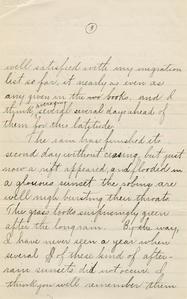 9
well satisfied with my migration
list so far, it nearly as even as
any given in the two books, and I
think, averaging several several days ahead of
them for this latitude.
The rain has finished its
second day without ceasing, but just
now a rift appeared, and flooded in
a glorious sunset the robins are
well nigh bursting their throats.
The grass looks surprisingly green
after the long rain. By the way,
I have never seen a year when
several of these kind of after-
rain sunsets did not occur. I
think you will remember them